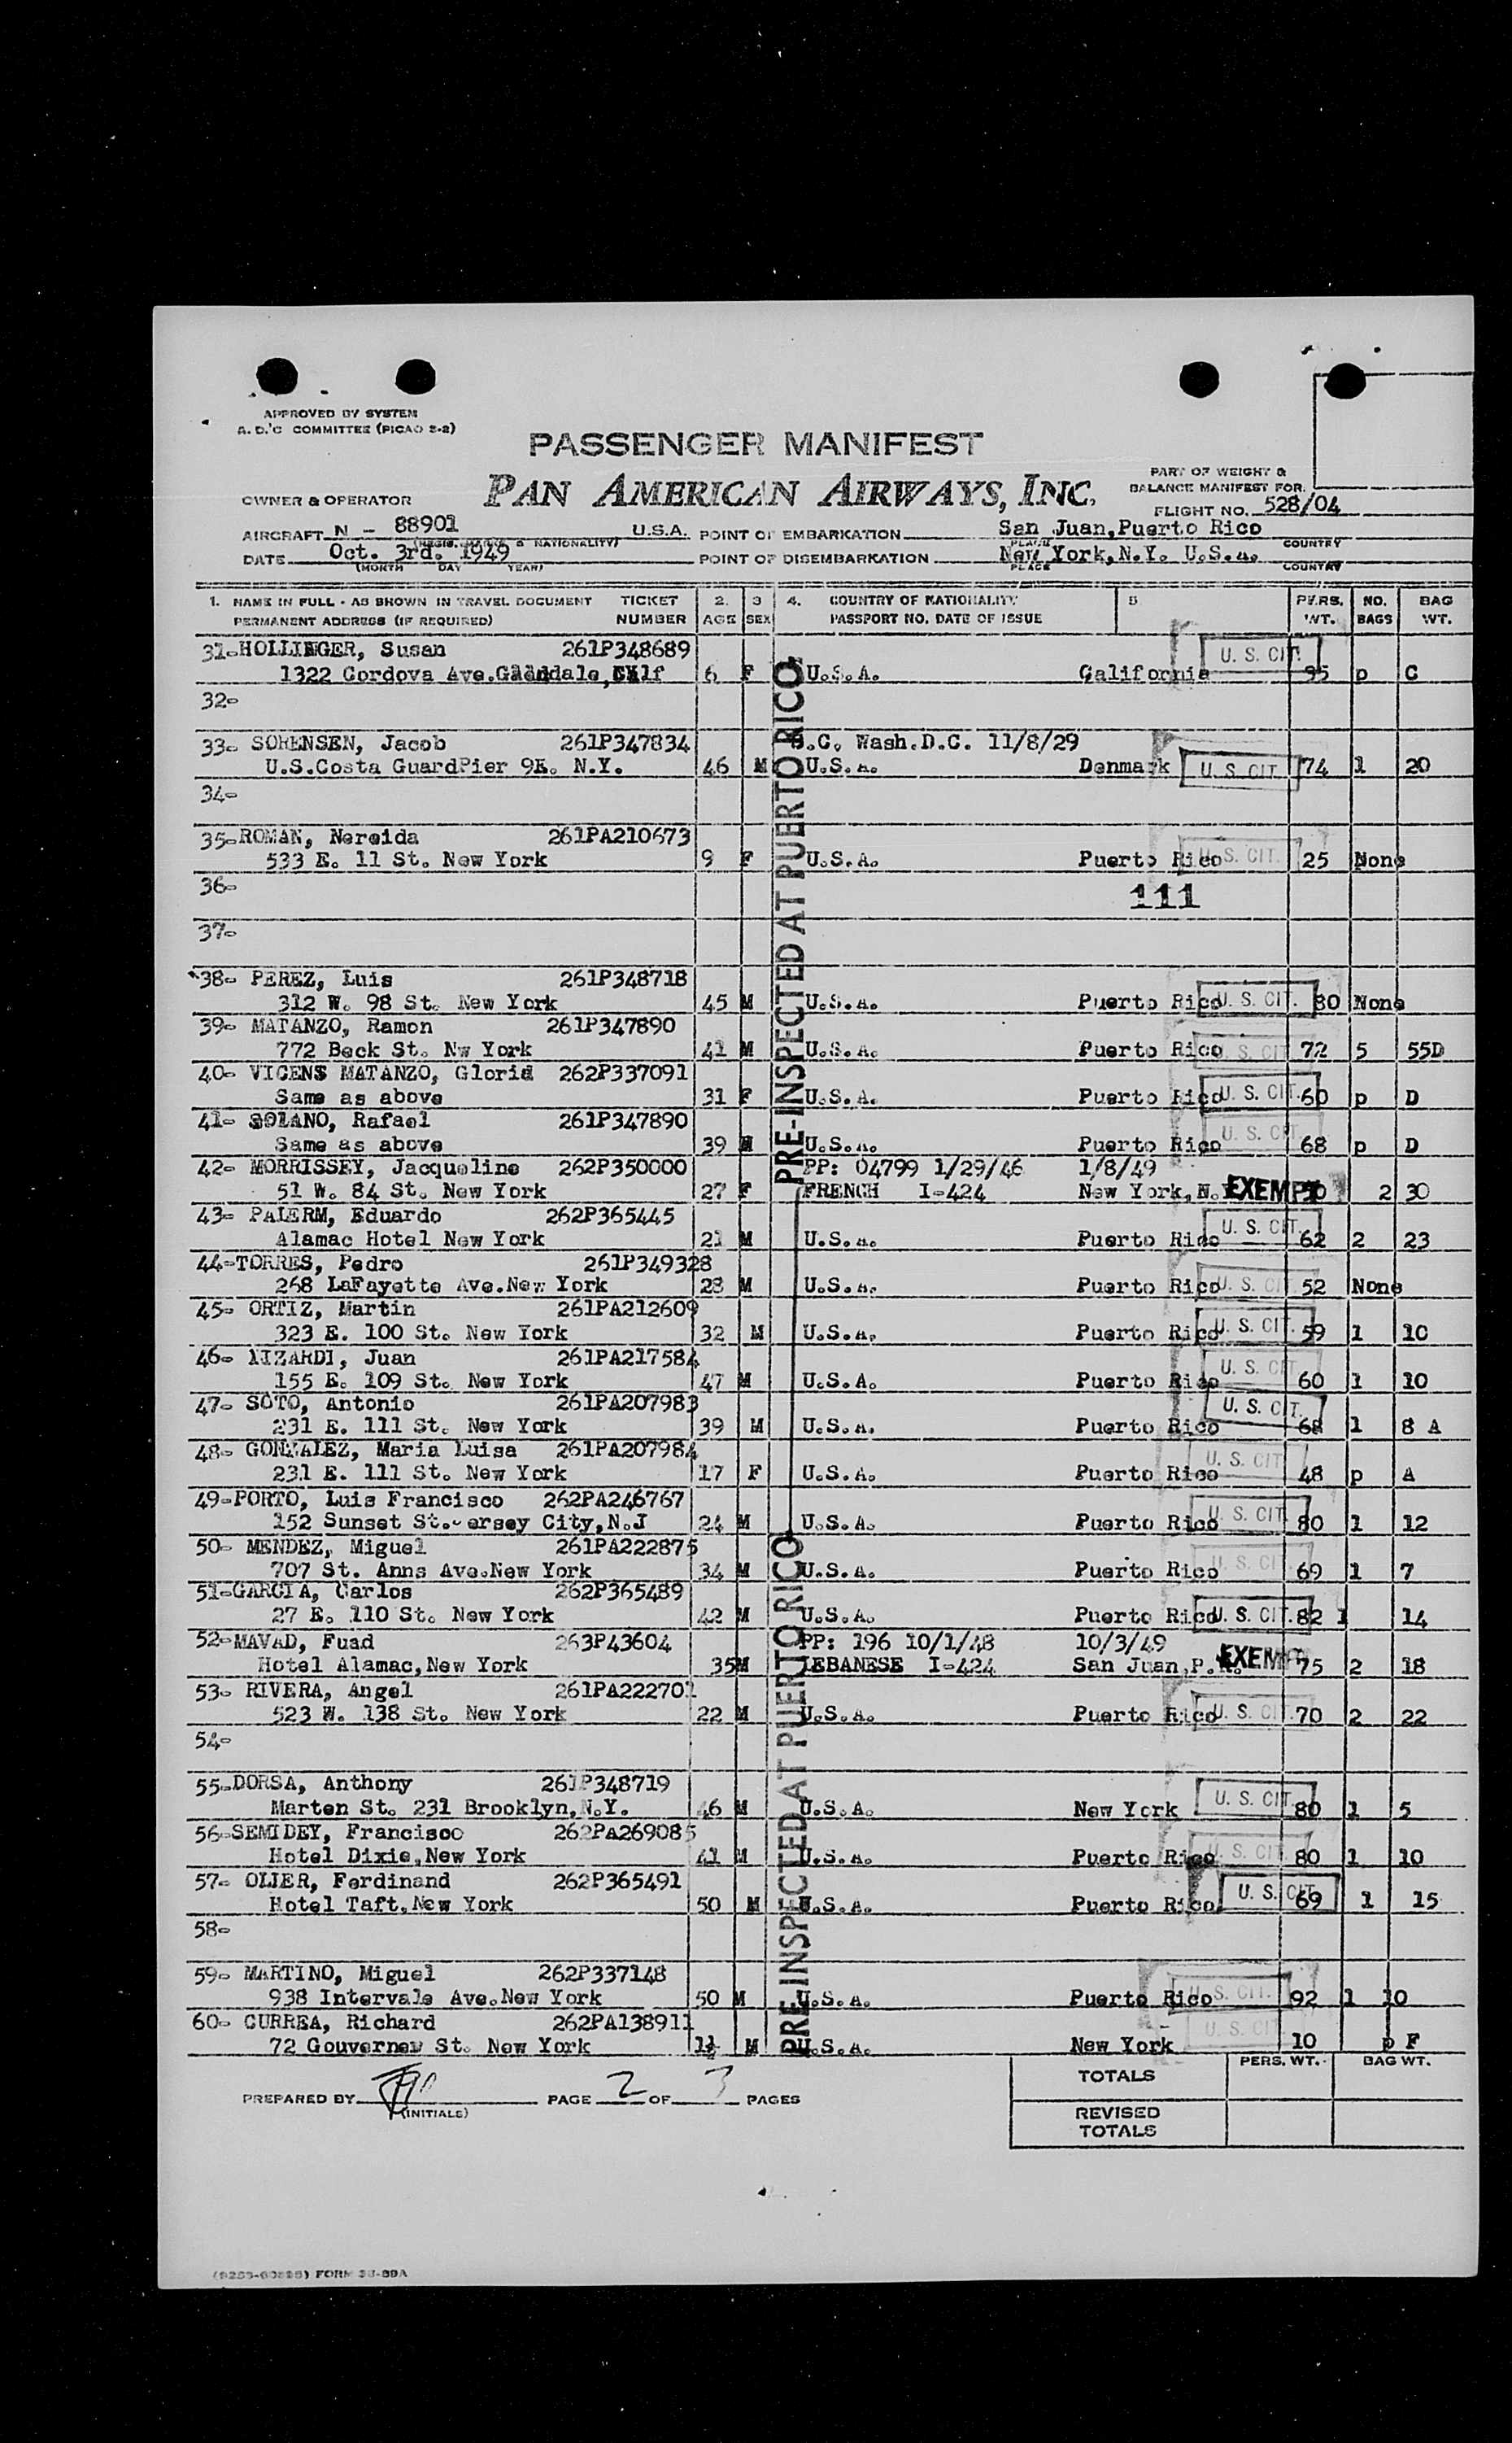 APPROVED BY SYSTEM
A. D.'C COMMITTEE (PICAO 2-2)
PASSENGER MANIFEST
PAN AMERICAN AIRWAYS, INC.
PART OF WEIGHT &
BALANCE MANIFEST FOR
OWNER & OPERATOR
FLIGHT NO. 528/04
AIRCRAFT N - 88901 U.S.A. POINT OF EMBARKATION San Juan,Puerto Rico
& NATIONALITY) PLACE COUNTRY
DATE Oct. 3rd. 1949 POINT OF DISEMBARKATION New York,N.Y. U.S.A.
(MONTH DAY YEAR) PLACE COUNTRY
1. NAME IN FULL - AS SHOWN IN TRAVEL DOCUMENT TICKET 2. 3 4. COUNTRY OF NATIONALITY 5 PERS. NO. BAG
PERMANENT ADDRESS (IF REQUIRED) NUMBER AGE SEX PASSPORT NO. DATE OF ISSUE WT. BAGS WT.
31-HOLLINGER, Susan 261P348689 U. S. CIT.
1322 Cordova Ave. 6 F U.S.A. California p C
32-
33- SORENSEN, Jacob 261P347834 Wash.D.C. 11/8/29
U.S.Costa GuardPier 9E. N.Y. 46 M U.S.A. Denmark U. S. CIT. 74 1 20
34-
35-ROMAN, Nereida 261PA210673
533 E. 11 St. New York 9 F U.S.A. Puerto Rico U. S. CIT. 25 None
36- 111
37-
38- PEREZ, Luis 261P348718
312 W. 98 St. New York 45 M U.S.A. Puerto Rico U. S. CIT. 80 None
39- MATANZO, Ramon 261P347890
772 Beck St. Nw York 41 M U.S.A. Puerto Rico U. S. CIT 72 5 55D
40- VICENS MATANZO, Gloria 262P337091
Same as above 31 F U.S.A. Puerto Rico U. S. CIT. 60 p D
41- SOLANO, Rafael 261P347890
Same as above 39 M U.S.A. Puerto Rico U. S. CIT 68 p D
42- MORRISSEY, Jacqueline 262P350000 PP: 04799 1/29/46 1/8/49
51 W. 84 St. New York 27 F FRENCH I-424 New York, N. EXEMPT 2 30
43- PALERM, Eduardo 262P365445
Alamac Hotel New York 21 M U.S.A. Puerto Rico U. S. CIT. 62 2 23
44-TORRES, Pedro 261P349328
268 LaFayette Ave.New York 28 M U.S.A. Puerto Rico U. S. CIT 52 None
45- ORTIZ, Martin 261PA212609
323 E. 100 St. New York 32 M U.S.A. Puerto Rico U. S. CIT. 59 1 10
46- Juan 261PA217584
155 E. 109 St. New York 47 M U.S.A. Puerto Rico U. S. CIT 60 1 10
47- SOTO, Antonio 261PA207983
231 E. 111 St. New York 39 M U.S.A. Puerto Rico U. S. CIT. 68 1 8 A
48- GONZALEZ, Maria Luisa 261PA207984
231 E. 111 St. New York 17 F U.S.A. Puerto Rico U. S. CIT 48 p A
49-PORTO, Luis Francisco 262PA246767
152 Sunset St. ersey City,N.J 24 M U.S.A. Puerto Rico U. S. CIT 80 1 12
50- MENDEZ, Miguel 261PA222875
707 St. Anns Ave.New York 34 M U.S.A. Puerto Rico U. S. CIT 69 1 7
51-GARCIA, Carlos 262P365489
27 E. 110 St. New York 42 M U.S.A. Puerto Rico U. S. CIT. 82 1 14
52-MAVAD, Fuad 263P43604 PP: 196 10/1/48 10/3/49
Hotel Alamac,New York 35M LEBANESE I-424 San Juan,P.R. EXEMPT 75 2 18
53- RIVERA, Angel 261PA222701
523 W. 138 St. New York 22 M U.S.A. Puerto Rico U. S. CIT. 70 2 22
54-
55-DORSA, Anthony 261P348719
Marten St. 231 Brooklyn,N.Y. 46 M U.S.A. New York U. S. CIT. 80 1 5
56-SEMIDEY, Francisco 262PA269085
Hotel Dixie,New York 41 M U.S.A. Puerto Rico U. S. CIT 80 1 10
57- OLIER, Ferdinand 262P365491
Hotel Taft,New York 50 M U.S.A. Puerto Rico U. S. CIT. 69 1 15
58-
59- MARTINO, Miguel 262P337148
938 Intervale Ave.New York 50 M U.S.A. Puerto Rico U. S. CIT. 92 1 10
60- CURREA, Richard 262PA138911 U. S. CIT
72 Gouverneu St. New York M U.S.A. New York 10 p F
PRE-INSPECTED AT PUERTO RICO
PRE-INSPECTED AT PUERTO RICO
TOTALS PERS. WT. BAG WT.
PREPARED BY (INITIALS) PAGE 2 OF 3 PAGES
REVISED
TOTALS